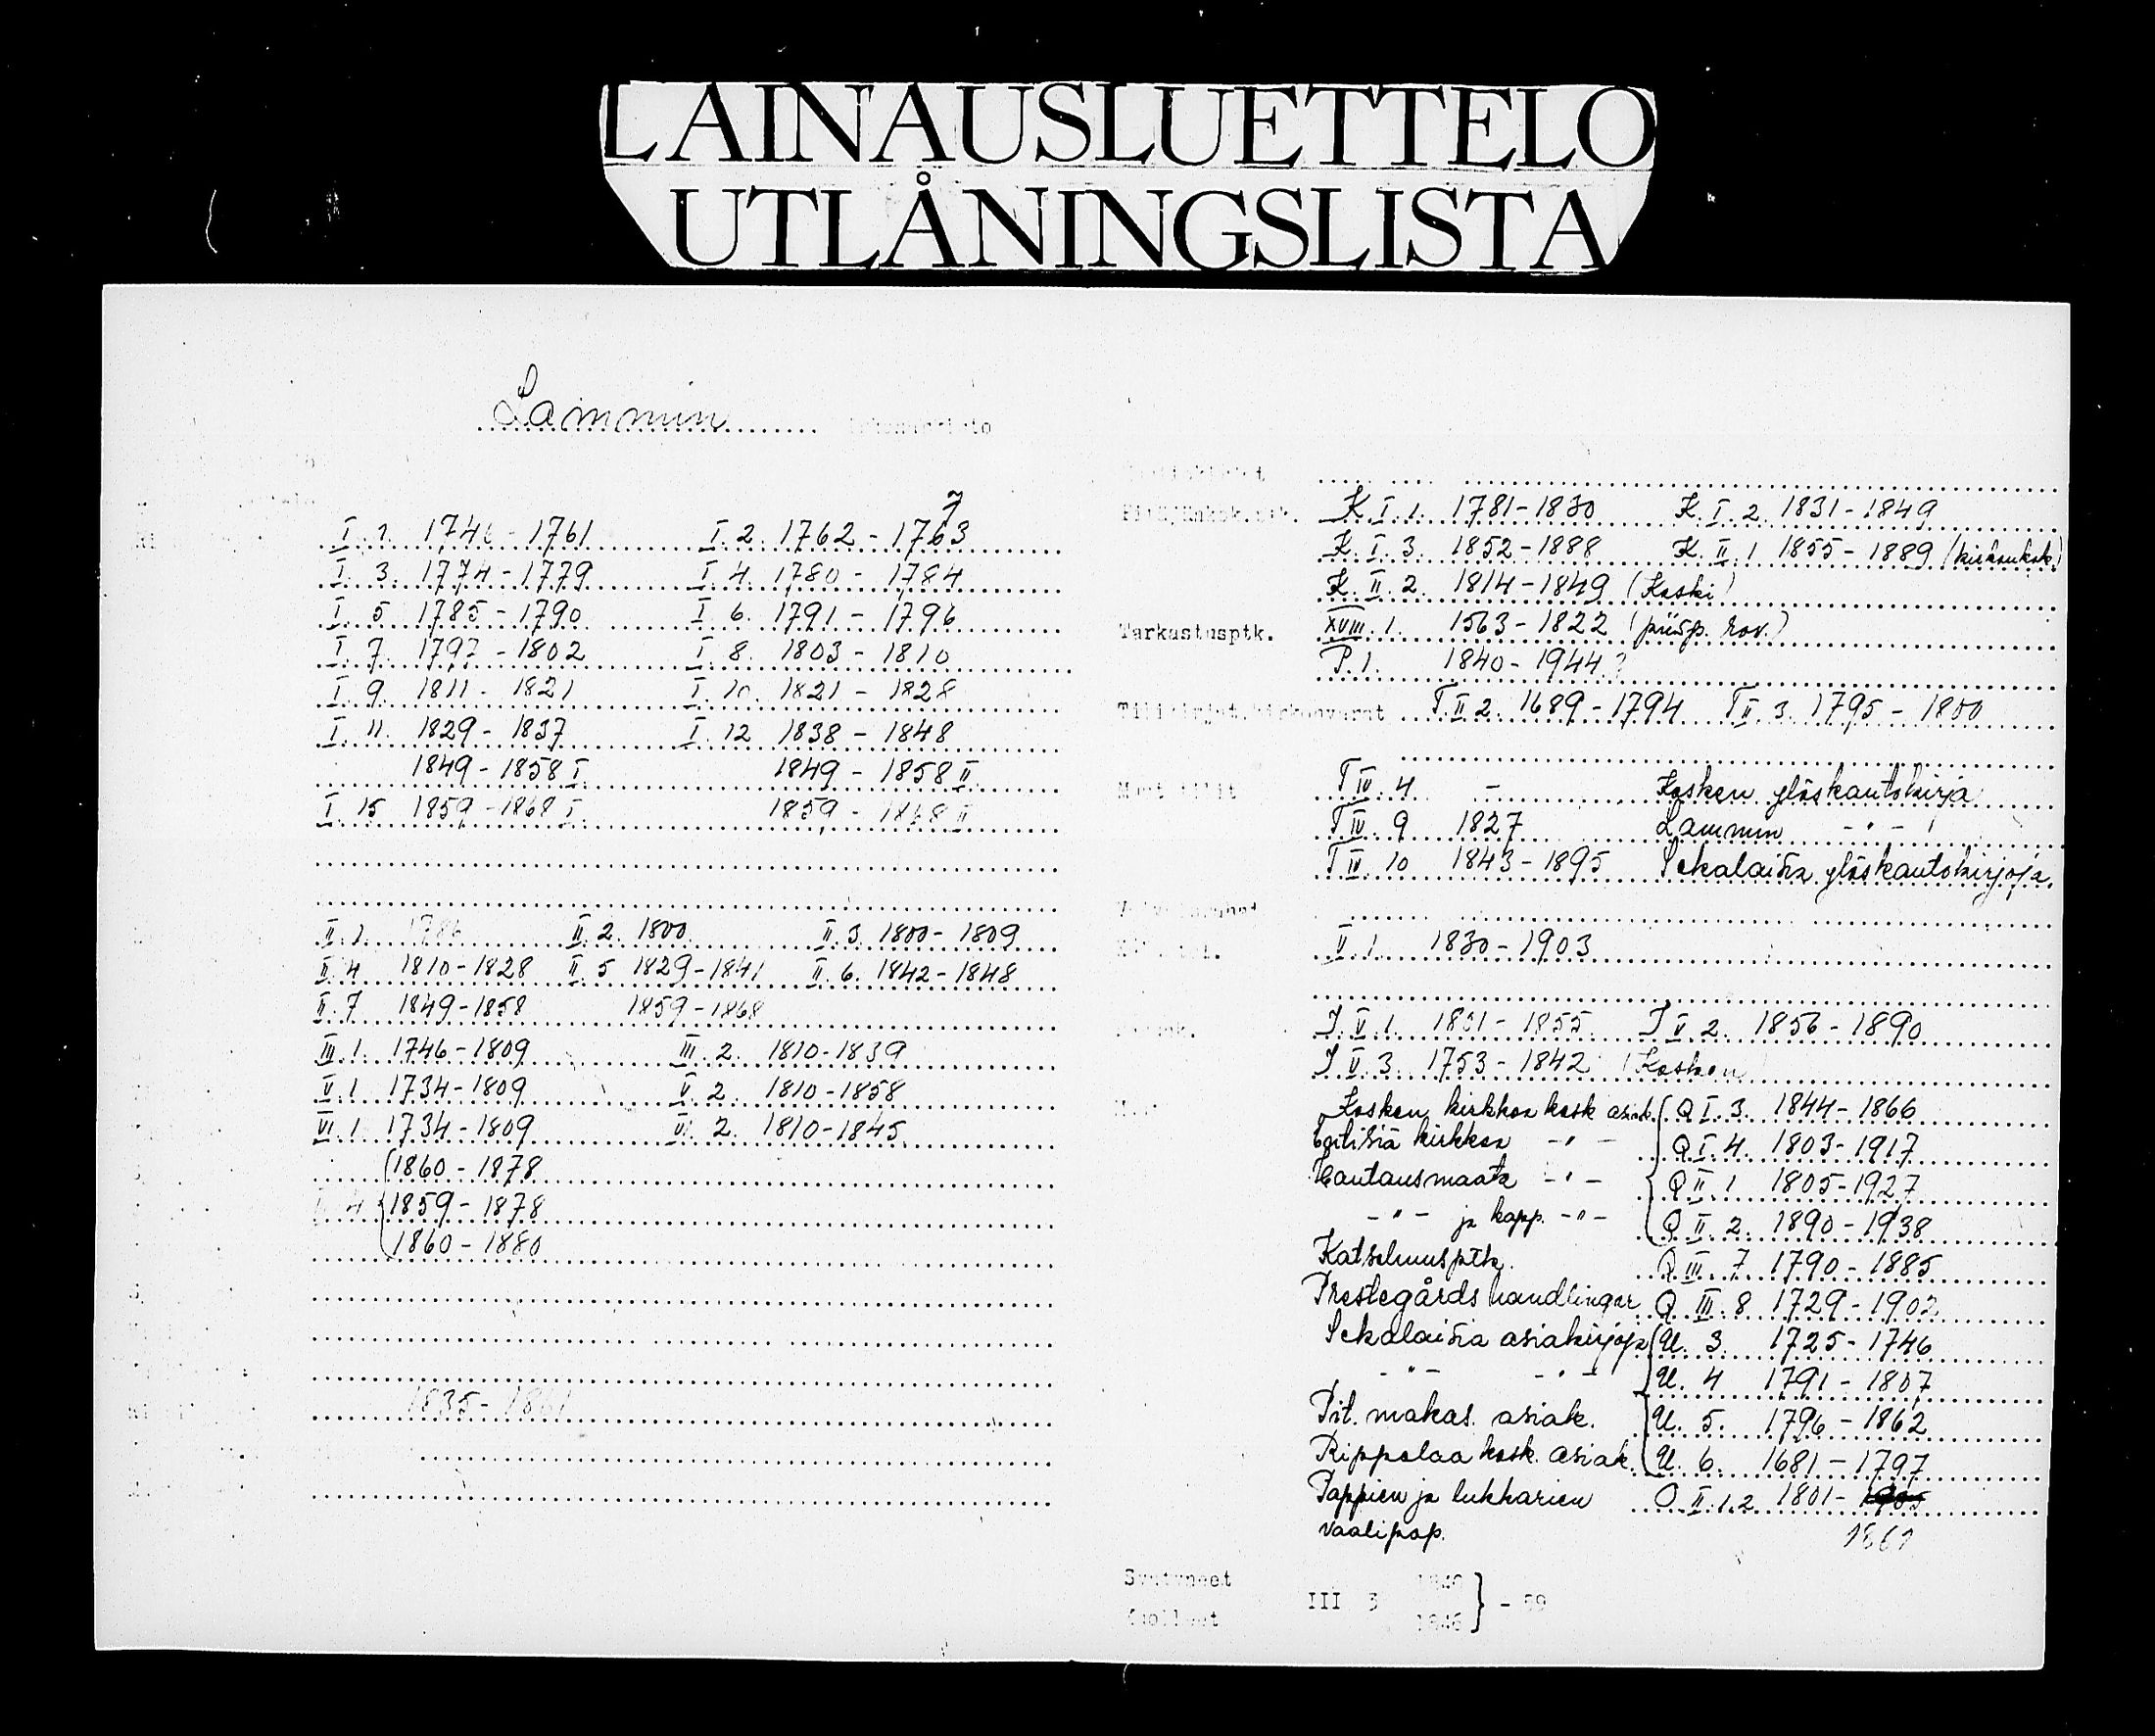 LAINAUSLUETTELO
UTLÅNINGSLISTA
Lammin
7
I. 1. 1746-1761 I. 2. 1762-1763
I. 3. 1774-1779 I. 4. 1780-1784
I. 5 1785-1790 I. 6. 1791-1796
I. 7. 1797-1802 I. 8. 1803-1810
I. 9. 1811-1821 I. 10. 1821-1828
I. 11. 1829-1837 I. 12 1838-1848
1849-1858 I 1849-1858 II
I. 15 1859-1868 I 1859-1868 II
II. 1. 1786 II. 2. 1800 II. 3. 1800-1809
II. 4 1810-1828 II. 5 1829-1841 II. 6. 1842-1848
II. 7 1849-1858 1859-1868
III. 1. 1746-1809 III. 2. 1810-1839
V. 1 1734-1809 V. 2. 1810-1858
VI. 1 1734-1809 VI. 2. 1810-1845
1860-1878
4 1859-1878
1860-1880
1835-1861
K. I. 1. 1781-1830 K. I. 2. 1831-1849
K. I. 3. 1852-1888 K. II. 1 1855-1889 (kirkonkok.)
K. II. 2. 1814-1849 (Koski)
Tarkastusptk. XVIII. 1. 1563-1822 (piisp. rov.)
P. 1. 1840-1944?
T II 2. 1689-1794 T II. 3. 1795-1800
Muut tilit T IV. 4 - Kosken ylöskantokirja
T IV. 9 1827 Lammin -"-
T IV. 10 1843-1895 Sekalaisia ylöskantokirjoja.
V. 1. 1830-1903
J. V. 1. 1831-1855 J V 2. 1856-1890
J V. 3. 1753-1842 (Kosken
Kosken kirkkoa kosk. asiak. Q I. 3. 1844-1866
Entisiä kirkkoa -"- Q I. 4. 1803-1917
Hautausmaata -"- Q II. 1 1805-1927
-"- ja kapp. -"- Q II. 2. 1890-1938
Katselmusptk. Q III. 7 1790-1885
Prestegårds handlingar Q III. 8 1729-1902
Sekalaisia asiakirjoja U. 3. 1725-1746
-"- -"- U. 4 1791-1807
Pit. makas. asiak. U. 5. 1796-1862
Rippolaa kosk. asiak. U. 6. 1681-1797
Pappien ja lukkarien O II. 1.2 1801-1905
vaalipap. 1861
Syntyneet 1840
III 3 } - 59
Kuolleet 1846